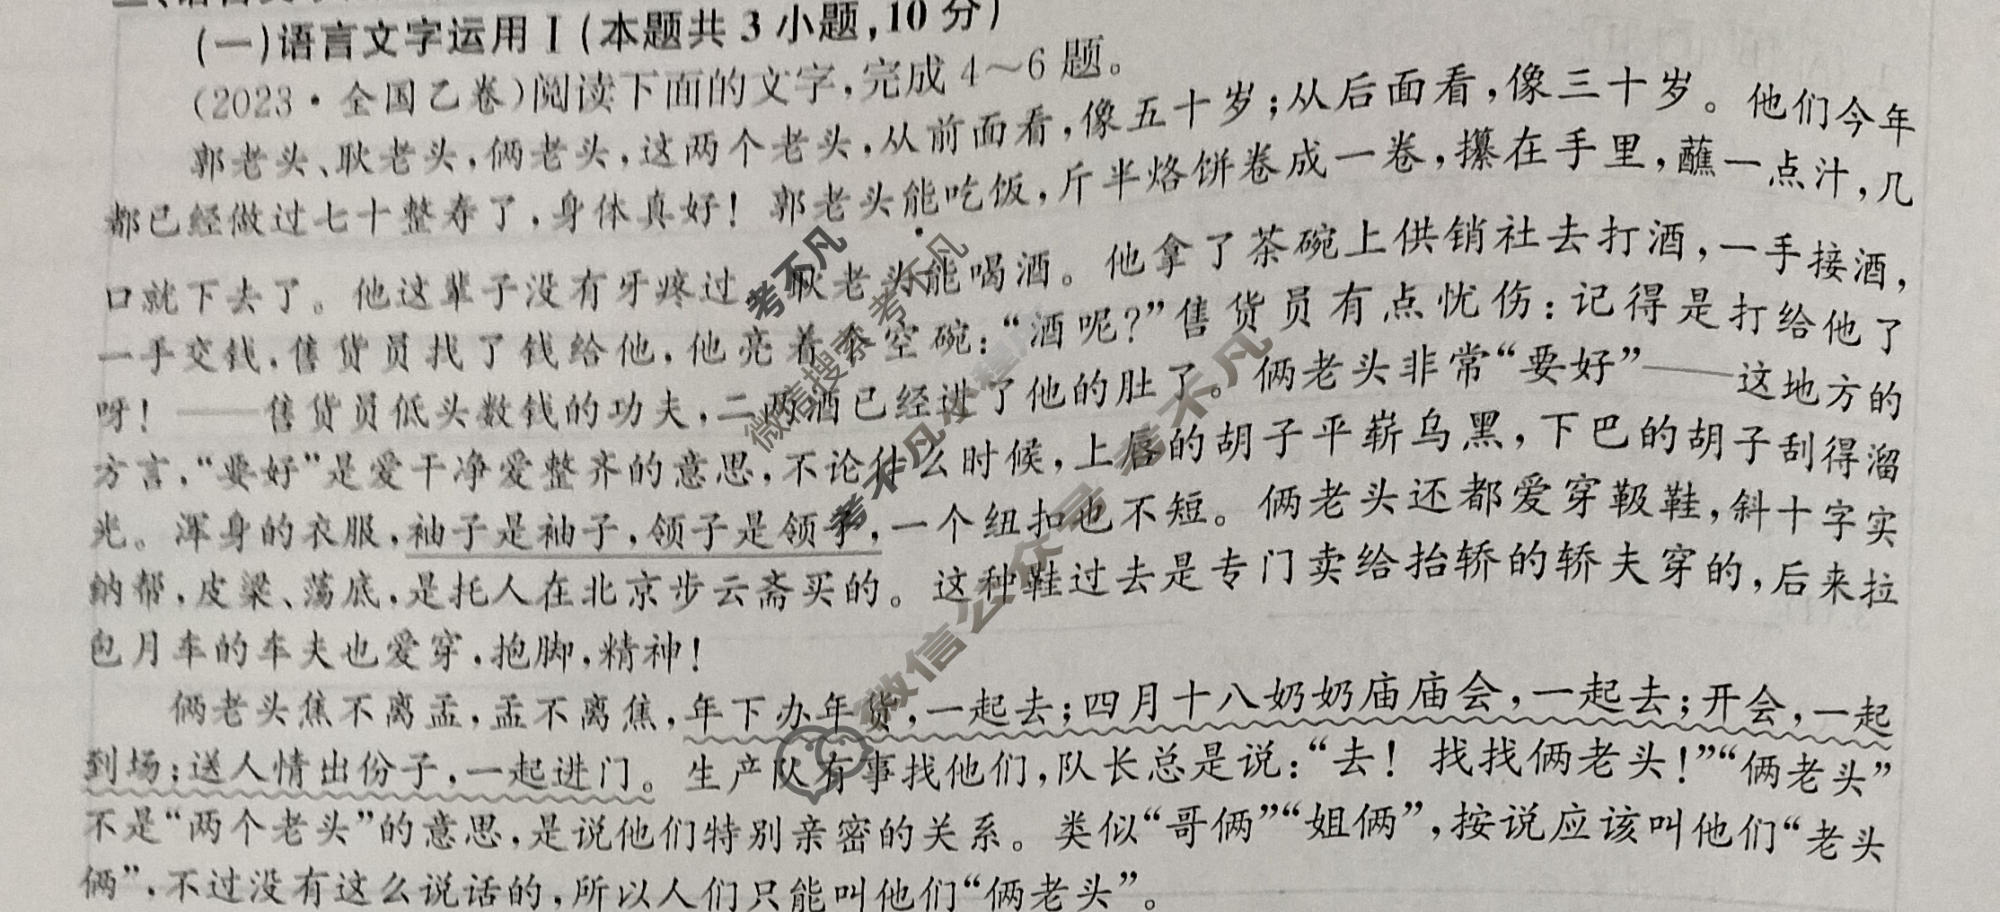 (一)语言文字运用Ⅰ(本题共3小题,10分)
(2023·全国乙卷)阅读下面的文字,完成4～6题。
郭老头、耿老头,俩老头,这两个老头,从前面看,像五十岁;从后面看,像三十岁。他们今年
都已经做过七十整寿了,身体真好!郭老头能吃饭,斤半烙饼卷成一卷,攥在手里,蘸一点汁,几
口就下去了。他这辈子没有牙疼过。耿老头能喝酒。他拿了茶碗上供销社去打酒,一手接酒,
一手交钱,售货员找了钱给他,他亮着个空碗:“酒呢?”售货员有点忧伤:记得是打给他了
呀!——售货员低头数钱的功夫,二两酒已经进了他的肚了。俩老头非常“要好”——这地方的
方言,“要好”是爱干净爱整齐的意思,不论什么时候,上唇的胡子平崭乌黑,下巴的胡子刮得溜
光。浑身的衣服,袖子是袖子,领子是领子,一个纽扣也不短。俩老头还都爱穿靸鞋,斜十字实
纳帮,皮梁、荡底,是托人在北京步云斋买的。这种鞋过去是专门卖给抬轿的轿夫穿的,后来拉
包月车的车夫也爱穿,抱脚,精神!
俩老头焦不离孟,孟不离焦,年下办年货,一起去;四月十八奶奶庙庙会,一起去;开会,一起
到场;送人情出份子,一起进门。生产队有事找他们,队长总是说:“去!找找俩老头!”“俩老头”
不是“两个老头”的意思,是说他们特别亲密的关系。类似“哥俩”“姐俩”,按说应该叫他们“老头
俩”,不过没有这么说话的,所以人们只能叫他们“俩老头”。
考不凡
微信搜索 考不凡
微信公众号 考不凡